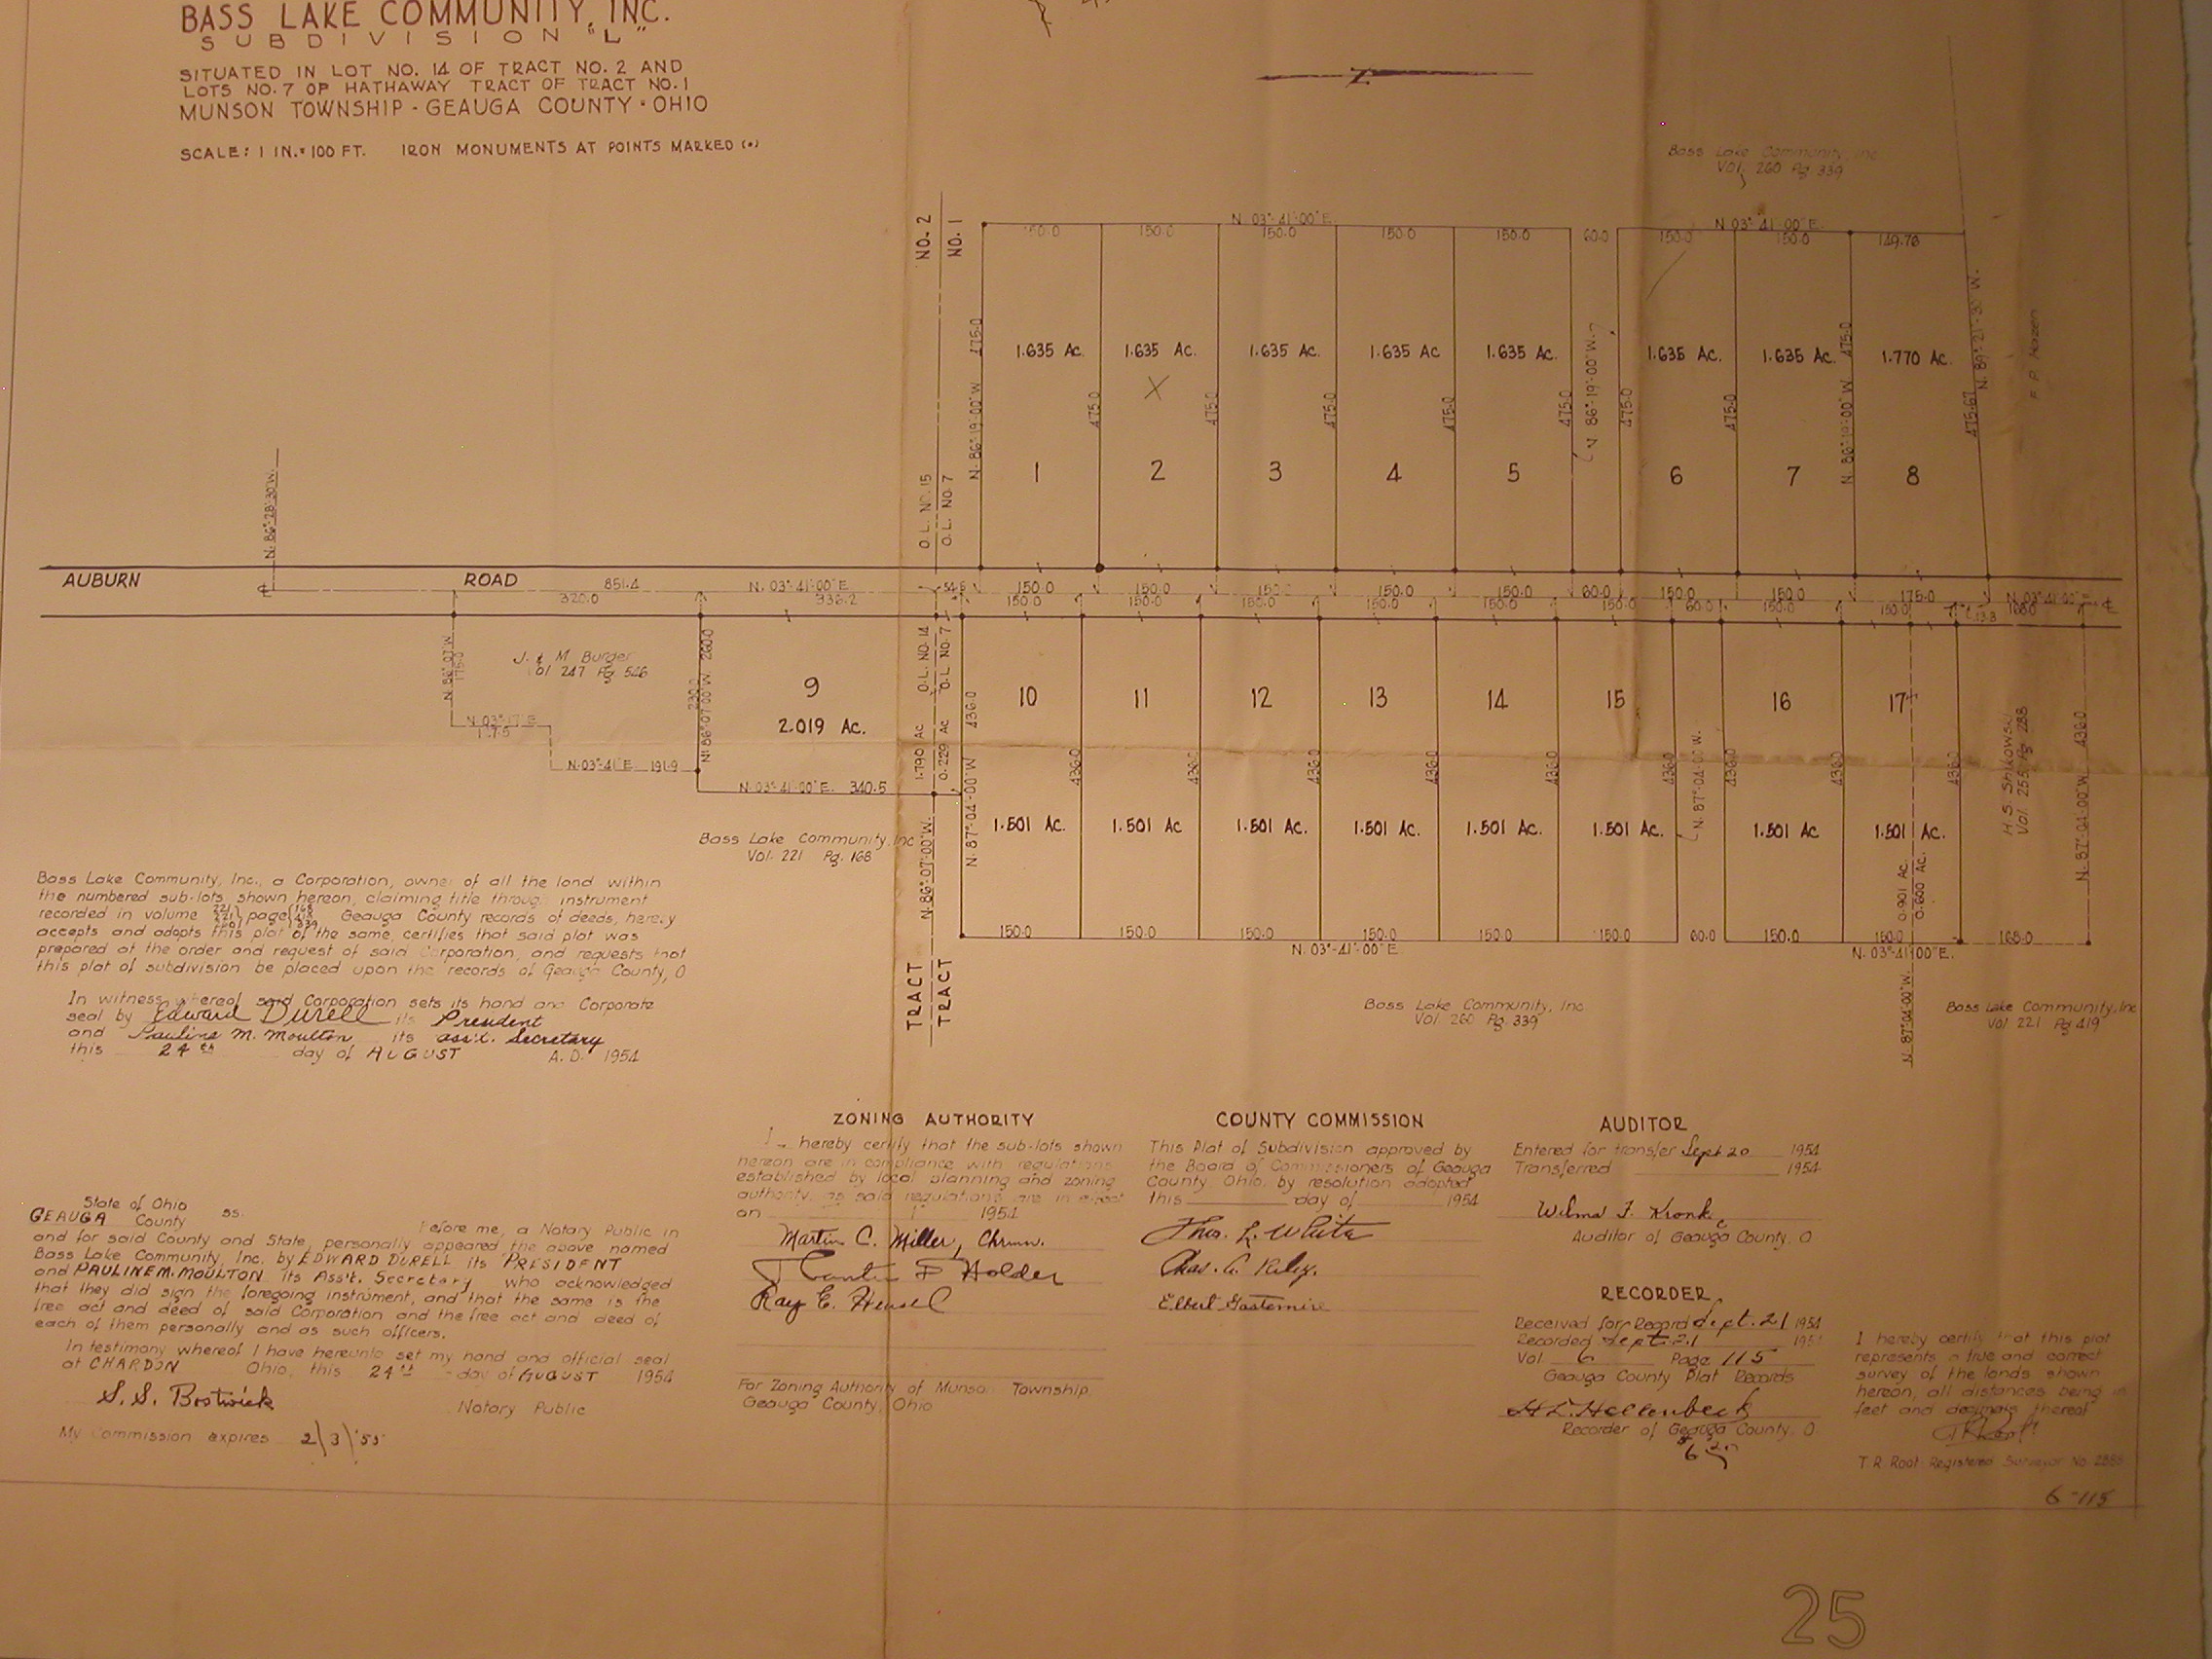 BASS LAKE COMMUNITY, INC.
SUBDIVISION "L"
SITUATED IN LOT NO. 14 OF TRACT NO. 2 AND
LOTS NO. 7 OF HATHAWAY TRACT OF TRACT NO. 1
MUNSON TOWNSHIP - GEAUGA COUNTY - OHIO
SCALE: 1 IN. = 100 FT. IRON MONUMENTS AT POINTS MARKED (•)
Bass Lake Community, Inc.
Vol. 260 Pg 339
NO. 2
NO. 1
N. 03°-41'-00" E. N. 03°-41'-00" E.
150.0 150.0 150.0 150.0 150.0 60.0 150.0 150.0 149.78
1.635 Ac. 1.635 Ac. 1.635 Ac. 1.635 Ac 1.635 Ac. 1.635 Ac. 1.635 Ac. 1.770 Ac.
X
N. 86°-19'-00" W 475.0
475.0 475.0 475.0 475.0 475.0
N. 86°-19'-00" W.
475.0 475.0
N. 86°-19'-00" W 475.0
475.67 N. 89°-21'-30" W.
1 2 3 4 5 6 7 8
O. L. NO. 15
O. L. NO. 7
N. 86°-28'-30" W.
AUBURN ROAD 851.4 N. 03°-41'-00" E
320.0 336.2
54.6 150.0 150.0 150.0 150.0 150.0 60.0 150.0 150.0 175.0 N. 03°-41'-00" E
150.0 150.0 150.0 150.0 150.0 150.0 60.0 150.0 150.0 13.3 168.0
N. 86°-07' W
175.0
J. & M Burger
Vol 247 Pg 546
N. 86°-07'-00" W 260.0
230.0
N. 03°-17' E
147.5
N. 03°-41' E 191.9
9
2.019 Ac.
N. 03°-41'-00" E. 340.5
O. L. NO. 14
O. L. NO. 7
1.790 Ac
0.229 Ac
N. 87°-04'-00" W 436.0
10 11 12 13 14 15 16 17
436.0 436.0 436.0 436.0 436.0 436.0 436.0 436.0 436.0
N. 87°-04'-00" W.
1.501 Ac. 1.501 Ac 1.501 Ac. 1.501 Ac. 1.501 Ac. 1.501 Ac. 1.501 Ac 1.501 Ac.
0.901 Ac.
0.600 Ac.
H. S. Shikowski
Vol. 255 Pg 288
N. 87°-04'-00" W 436.0
Bass Lake Community, Inc
Vol. 221 Pg. 168
N. 86°-07'-00" W.
150.0 150.0 150.0 150.0 150.0 150.0 60.0 150.0 150.0 165.0
N. 03°-41'-00" E. N. 03°-41'-00" E.
TRACT
TRACT
N. 87°-04'-00" W.
Bass Lake Community, Inc
Vol. 260 Pg. 339
Bass Lake Community, Inc
Vol 221 Pg 419
Bass Lake Community, Inc., a Corporation, owner of all the land within
the numbered sub-lots, shown hereon, claiming title through instrument
recorded in volume page Geauga County records of deeds, hereby
accepts and adopts this plat of the same, certifies that said plat was
prepared at the order and request of said Corporation, and requests that
this plat of subdivision be placed upon the records of Geauga County, O
In witness whereof said Corporation sets its hand and Corporate
seal by Edward Durell its President
and Pauline M. Moulton its ass't. Secretary
this 24th day of AUGUST A. D. 1954
State of Ohio
GEAUGA County ss.
Before me, a Notary Public in
and for said County and State, personally appeared the above named
Bass Lake Community, Inc. by EDWARD DURELL its PRESIDENT
and PAULINE M. MOULTON its Ass't. Secretary who acknowledged
that they did sign the foregoing instrument, and that the same is the
free act and deed of said Corporation and the free act and deed of
each of them personally and as such officers.
In testimony whereof I have hereunto set my hand and official seal
at CHARDON Ohio, this 24th day of AUGUST 1954
S. S. Bostwick
Notary Public
My Commission expires 2/3/'55
ZONING AUTHORITY
I hereby certify that the sub-lots shown
hereon are in compliance with regulations
established by local planning and zoning
authority, as said regulations are in effect
on 1954
Martin C. Miller, Chrmn.
Holder
Ray E. Hensel
For Zoning Authority of Munson Township
Geauga County, Ohio
COUNTY COMMISSION
This Plat of Subdivision approved by
the Board of Commissioners of Geauga
County Ohio, by resolution adopted
this day of 1954
Thos. L. White
Chas. A. Riley.
Elbert Gastemire
AUDITOR
Entered for transfer Sept 20 1954
Transferred 1954
Wilma F. Kronk
Auditor of Geauga County, O
RECORDER
Received for Record Sept. 21 1954
Recorded Sept. 21 1954
Vol. 6 Page 115
Geauga County Plat Records
H L. Hollenbeck
Recorder of Geauga County, O.
I hereby certify that this plat
represents a true and correct
survey of the lands shown
hereon, all distances being in
feet and decimals thereof
T R Root
T. R. Root Registered Surveyor No.
6-115
25